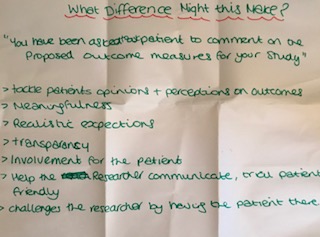 What Difference Might this Make?
"You have been asked as a patient to comment on the
proposed outcome measures for your study"
> tackle patients opinions + perceptions on outcomes
> Meaningfulness
> Realistic expections
> transparancy
> Involvement for the patient
> Help the Researcher communicate, trial patient
friendly
> challenges the researcher by having the patient there